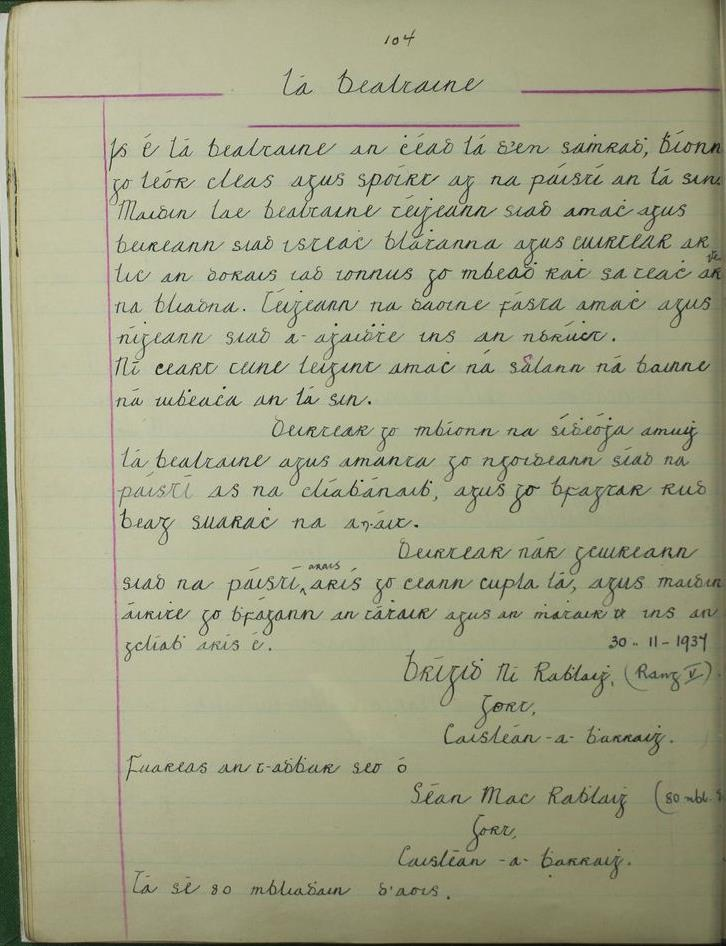 104
Lá Bealtaine
Is é lá Bealtaine an ċéad lá d'en saṁraḋ, Bíonn
go leór cleas agus spóirt ag na páistí an lá sin.
Maidin lae Bealtaine téiġeann siad amaċ agus
beireann siad isteaċ bláṫanna agus cuirtear ar
lic an dorais iad ionnus go mbeaḋ raṫ sa teaċ ar
na bliaḋna. Téiġeann na daoine fásta amaċ agus
niġeann siad a-aġaiḋṫe ins an ndrúċt.
Ní ceart teine leigint amaċ ná salann ná bainne
ná uibeaċa an lá sin.
Deirtear go mbíonn na síḋeóga amuiġ
lá Bealtaine agus amanta go ngoideann siad na
páistí as na cliaḃánaiḃ, agus go ḃfágtar rud
beag suaraċ na a-áit.
Deirtear nár ġcuireann
siad na páistí arais arís go ceann cupla lá, agus maidin
áiriṫe go ḃfágann an t-aṫair agus an ṁáṫair ins an
gcliaḃ arís é.
30-11-1937
Bríġid Ní Raḃlaiġ, (Rang V).
Gort,
Caisleán-a-Ḃarraiġ.
Fuareas an t-aḋḃar seo ó
Séan Mac Raḃlaiġ (80 mbl.
Gort,
Caisleán-a-Ḃarraiġ.
Tá sé 80 mbliadain d'aois.